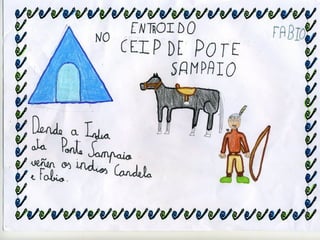 ENTROIDO
FABIO
NO CEIP DE POTE
SAMPAIO
Dende a India
ata Ponte Sampaio
veñen os indios Candela
e Fabio.